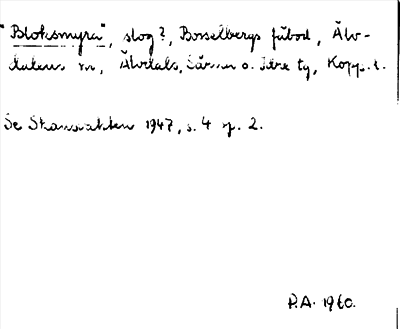 "Bloksmyra", slog?, Bosselbergs fäbod, Älv-
dalens sn, Älvdals, Särna o. Idre tg, Kopp. l.
Se Skansvakten 1947, s. 4 sp. 2.
P.A. 1960.